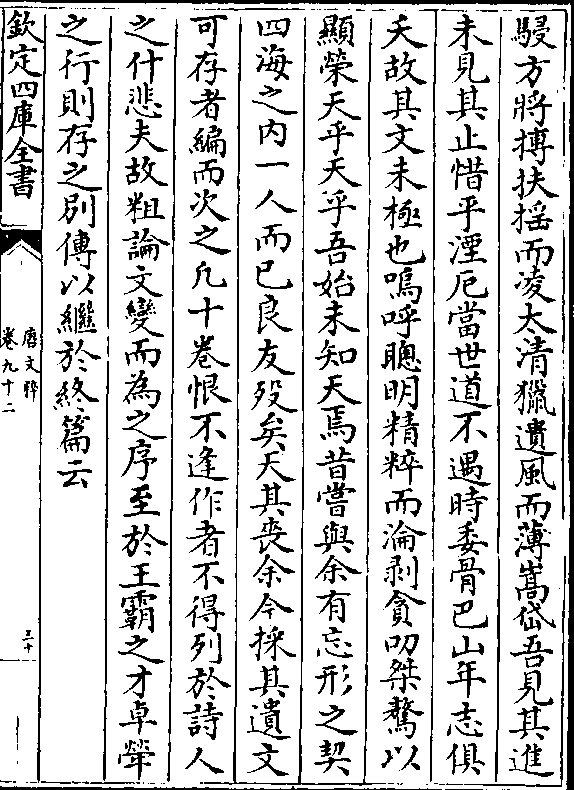 駸方將摶扶揺而凌太清獵遺風而薄嵩岱吾見其進
未見其止惜乎湮厄當世道不遇時委骨巴山年志俱
夭故其文未極也嗚呼聰明精粹而淪剥貪叨桀驁以
顯榮天乎天乎吾始未知天焉昔嘗與余有忘形之契
四海之内一人而已良友殁矣天其喪余今採其遺文
可存者編而次之凡十卷恨不逢作者不得列於詩人
之什悲夫故粗論文變而為之序至於王霸之才卓犖
之行則存之别傳以繼於終篇云
欽定四庫全書
唐文粹
卷九十二
三十